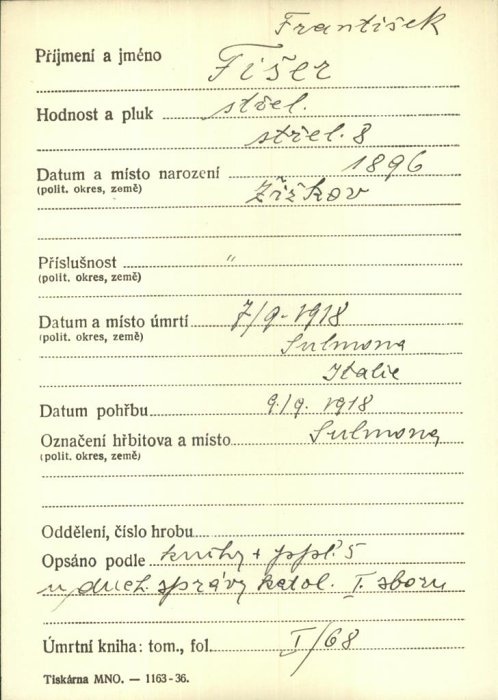 František
Příjmení a jméno Fišer
Hodnost a pluk střel.
střel. 8
Datum a místo narození 1896
(polit. okres, země) Žižkov
Příslušnost "
(polit. okres, země)
Datum a místo úmrtí 7/9. 1918
(polit. okres, země) Sulmona
Italie
Datum pohřbu 9./9. 1918
Označení hřbitova a místo Sulmona
(polit. okres, země)
Oddělení, číslo hrobu
Opsáno podle knihy + 5
duch. správy katol. I. sboru
Úmrtní kniha: tom., fol. I/68
Tiskárna MNO. — 1163-36.